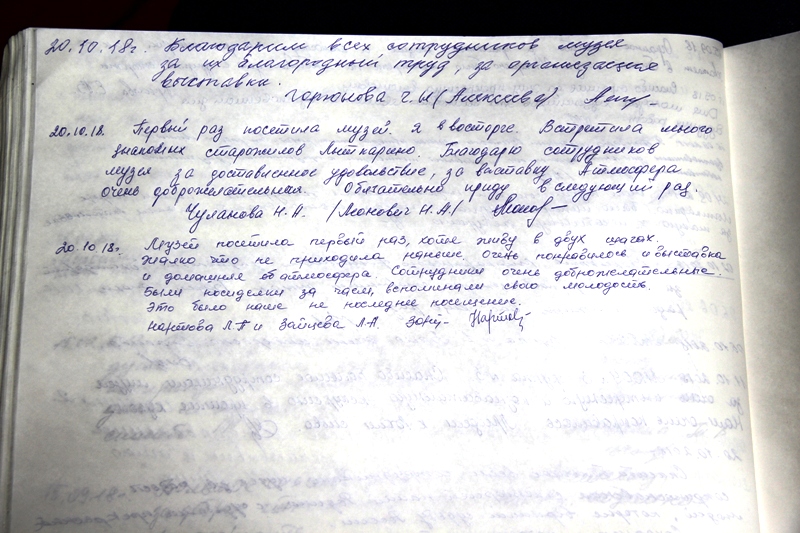 20.10.18г. Благодарим всех сотрудников музея
за их благородный труд, за организацию
выставки.
Горюнова Г.И (Алексеева)
20.10.18. Первый раз посетила музей. Я в восторге. Встретила много
знакомых старожилов Лыткарино. Благодарю сотрудников
музея за доставленное удовольствие, за выставку. Атмосфера
очень доброжелательная. Обязательно приду в следующий раз.
Чуланова Н.А. (Леонович Н.А)
20.10 18г. Музей посетила первый раз, хотя живу в двух шагах.
Жалко что не приходила раньше. Очень понравилось и выставка
и домашняя атмосфера. Сотрудники очень доброжелательные.
Были посиделки за чаем, вспоминали свою молодость.
Это было наше не последнее посещение.
Нартова Л.П и Зайцева Л.А.